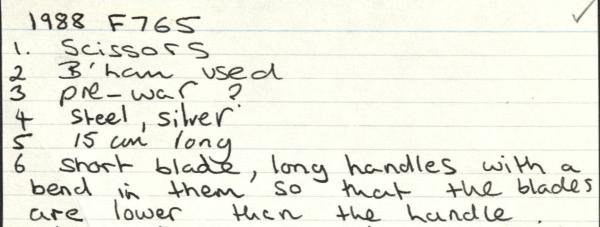 1988 F765
1. Scissors
2 B'ham used
3 pre-war ?
4 steel, silver
5 15 cm long
6 short blade, long handles with a
bend in them so that the blades
are lower than the handle.